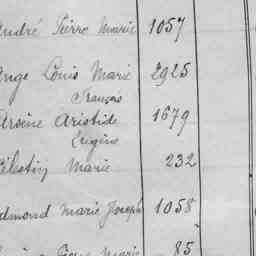 André Pierre Marie 1057
Ange Louis Marie 2925
François
Arsène Aristide 1679
Eugène
Célestin Marie 232
Edmond Marie Joseph 1058
Marie 85